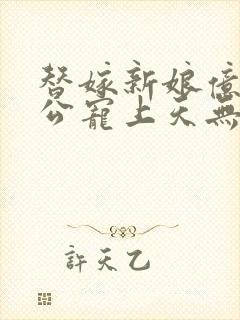 替嫁新娘億
公寵上天無
許天乙